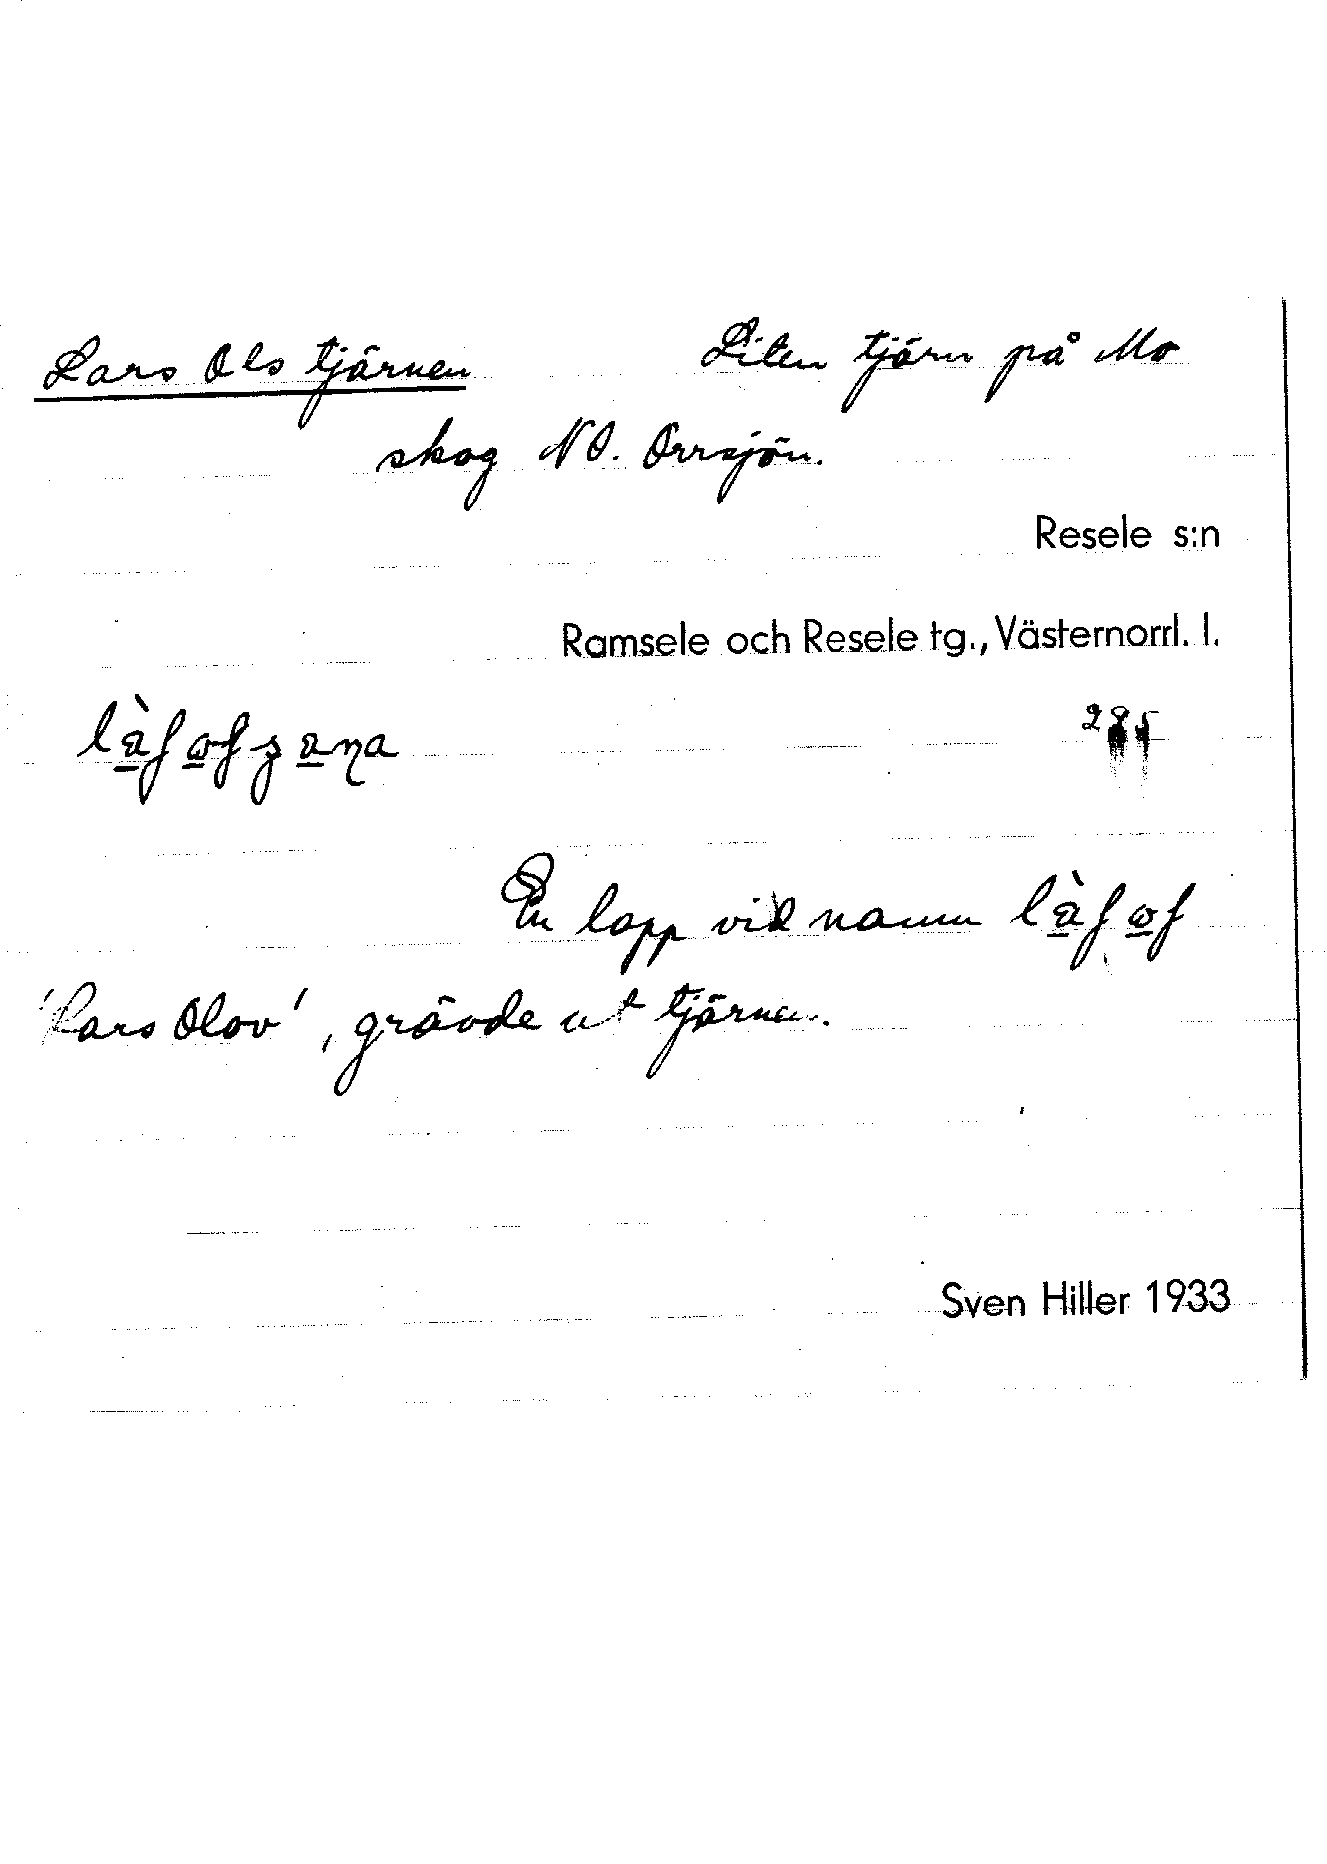 Lars Ols tjärnen Liten tjärn på Mo
skog NO. Orrsjön.
Resele s:n
Ramsele och Resele tg., Västernorrl. l.
285
En lapp vid namn
'Lars Olov', grävde ut tjärnen.
Sven Hiller 1933